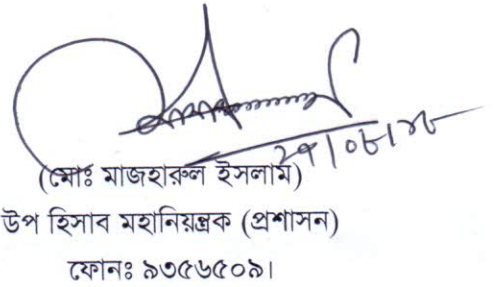 (মোঃ মাজহারুল ইসলাম)
উপ হিসাব মহানিয়ন্ত্রক (প্রশাসন)
ফোনঃ ৯৩৫৬৫০৯।